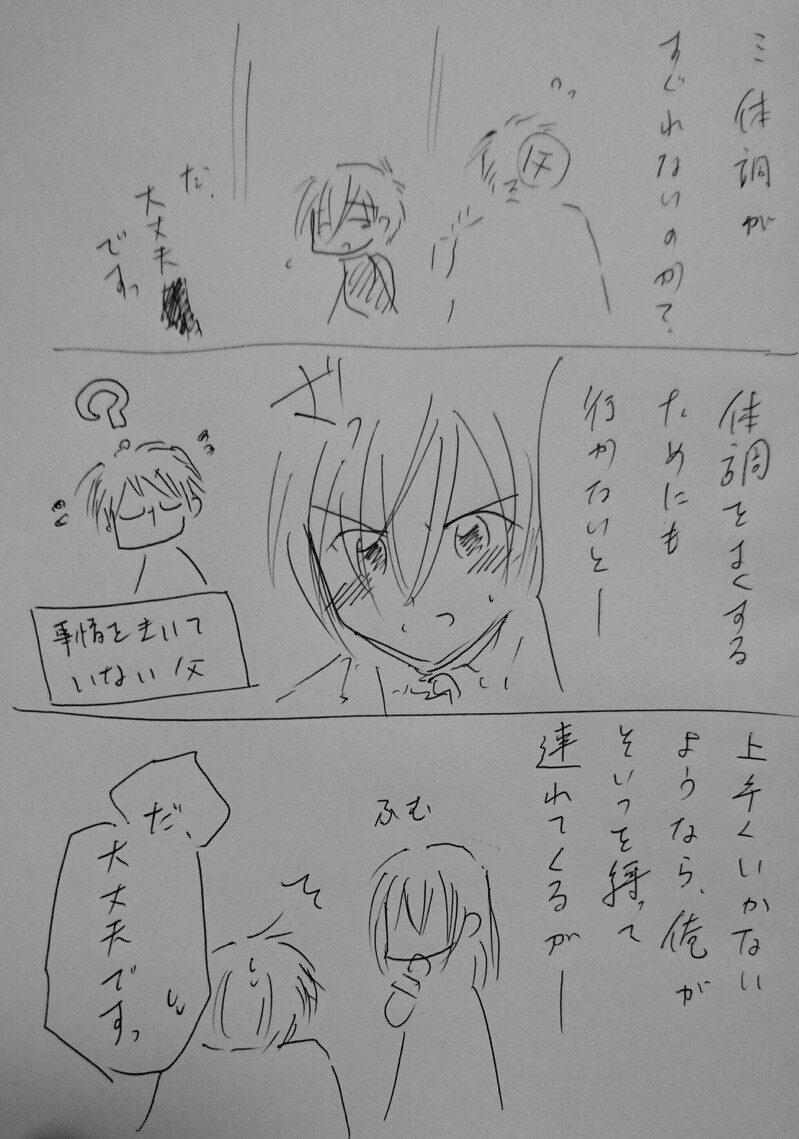 ミ体調が
すぐれないのか?
父
だ、
大丈夫
ですっ
体調をよくする
ためにも
行かないとー
ざっ
?
事情をきいて
いない父
上手くいかない
ようなら、俺が
そいつを縛って
連れてくるがー
ふむ
だ、
大丈夫ですっ